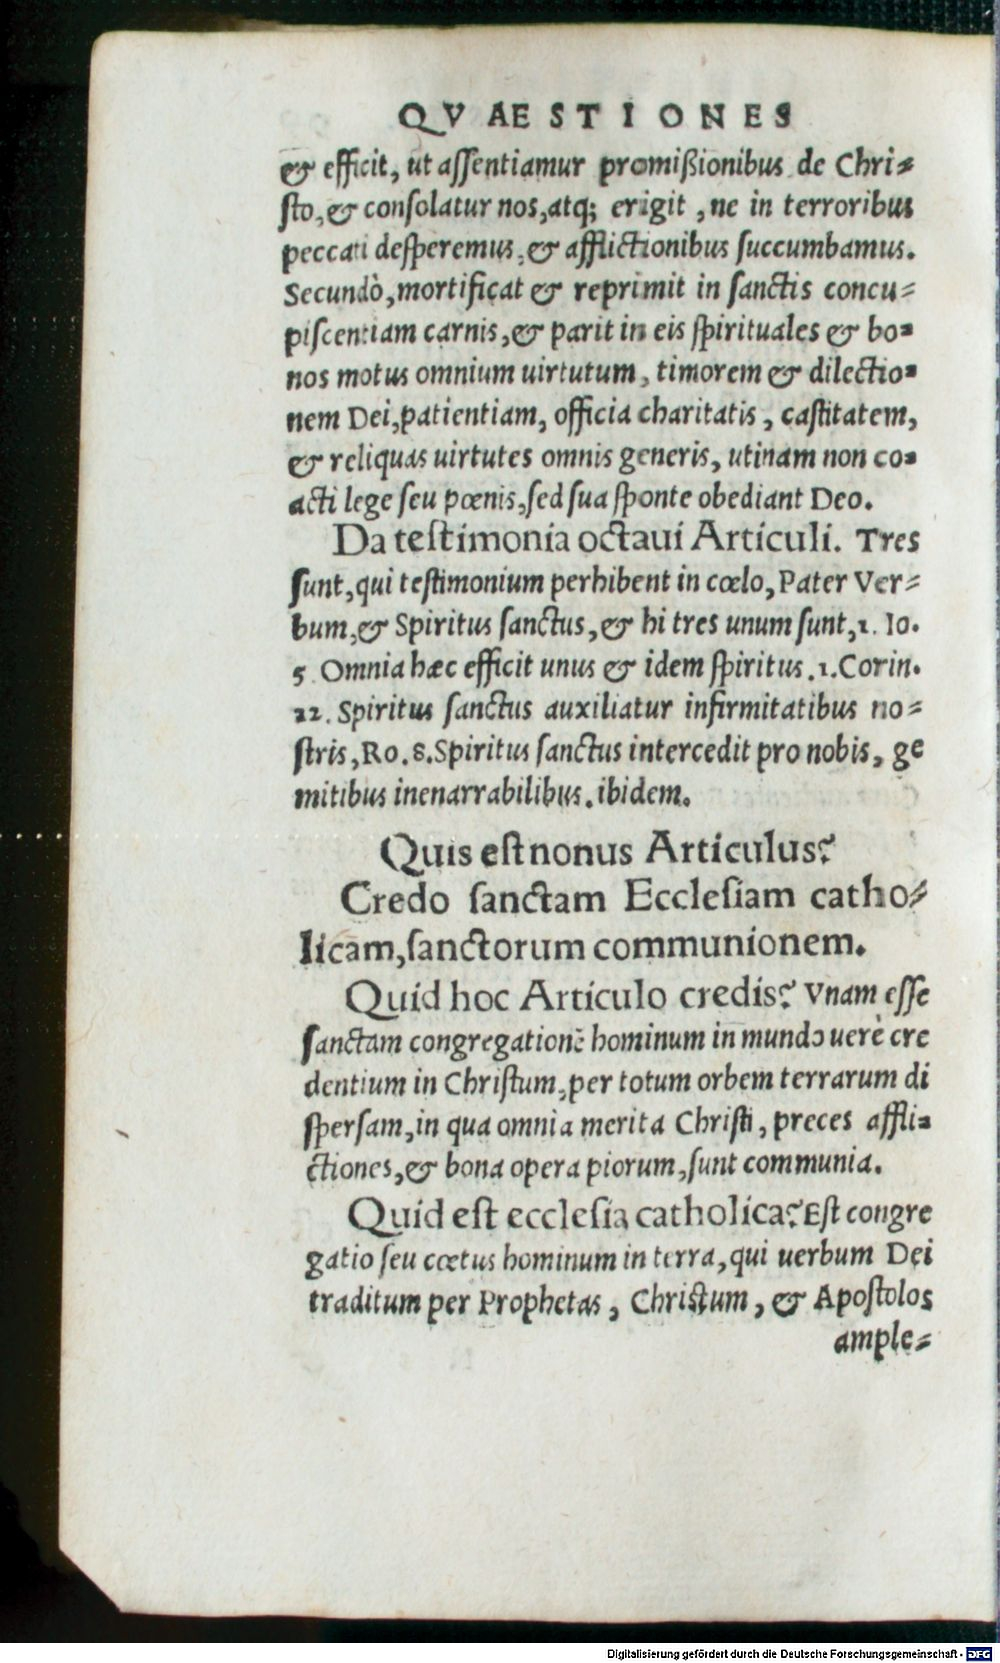 QVAESTIONES
& efficit, ut aſſentiamur promißionibus de Chri⸗
ſto, & conſolatur nos, atq; erigit, ne in terroribus
peccati deſperemus, & afflictionibus ſuccumbamus.
Secundò, mortificat & reprimit in ſanctis concu⸗
piſcentiam carnis, & parit in eis ſpirituales & bo⸗
nos motus omnium uirtutum, timorem & dilectio⸗
nem Dei, patientiam, officia charitatis, caſtitatem,
& reliquas uirtutes omnis generis, utinam non co⸗
acti lege ſeu pœnis, ſed ſua ſponte obediant Deo.
Da teſtimonia octaui Articuli. Tres
ſunt, qui teſtimonium perhibent in cœlo, Pater Ver⸗
bum, & Spiritus ſanctus, & hi tres unum ſunt, 1. Io.
5 Omnia hæc efficit unus & idem ſpiritus. 1. Corin.
12. Spiritus ſanctus auxiliatur infirmitatibus no⸗
ſtris, Ro. 8. Spiritus ſanctus intercedit pro nobis, ge
mitibus inenarrabilibus. ibidem.
Quis eſt nonus Articulus?
Credo ſanctam Eccleſiam catho⸗
licam, ſanctorum communionem.
Quid hoc Articulo credis? Vnam eſſe
ſanctam congregationẽ hominum in mundo uerè cre
dentium in Chriſtum, per totum orbem terrarum di
ſperſam, in qua omnia merita Chriſti, preces affli⸗
ctiones, & bona opera piorum, ſunt communia.
Quid eſt eccleſia catholica? Eſt congre
gatio ſeu cœtus hominum in terra, qui uerbum Dei
traditum per Prophetas, Chriſtum, & Apoſtolos
ample⸗
Digitalisierung gefördert durch die Deutsche Forschungsgemeinschaft - DFG